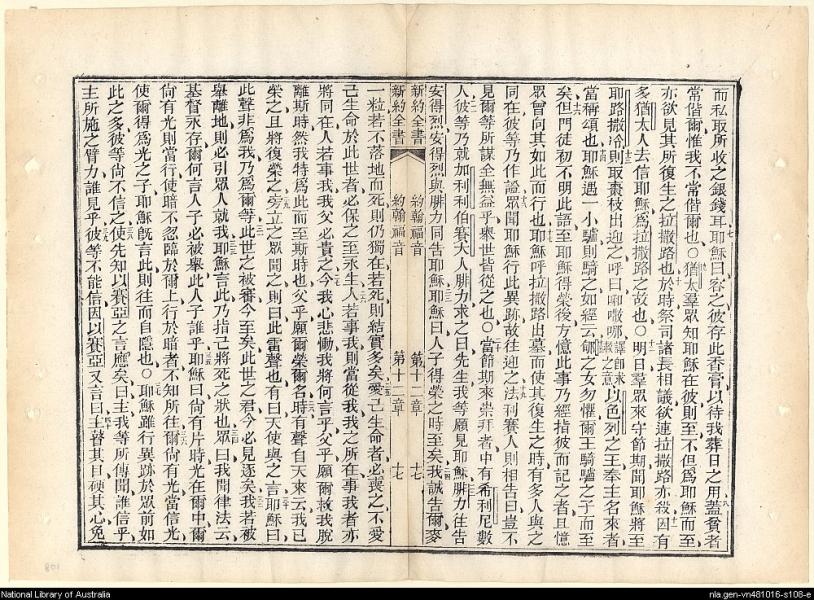 而私取所收之銀錢耳耶穌曰容之彼存此香膏以待我葬日之用蓋貧者
常偕爾惟我不常偕爾也○猶太羣眾知耶穌在彼則至不但為耶穌而至
亦欲見其所復生之拉撒路也於時祭司諸長相議欲連拉撒路亦殺因有
多猶太人去信耶穌為拉撒路之故也○明日羣眾來守節期聞耶穌將至
耶路撒冷則取棗枝出迎之呼曰
以色列之王奉主名來者
當稱頌也耶穌遇一小驢則騎之如經云郇之女勿懼爾王騎驢之子而至
矣但門徒初不明此語至耶穌得榮後方憶此事乃經指彼而記之者且憶
眾曾向其如此而行也耶穌呼拉撒路出墓而使其復生之時有多人與之
同在彼等乃作證眾聞耶穌行此異跡故往迎之法利賽人則相告曰豈不
見爾等所謀全無益乎舉世皆從之也○當節期來崇拜者中有希利尼數
人彼等乃就加利利伯賽大人腓力求之曰先生我等願見耶穌腓力往告
安得烈安得烈與腓力同告耶穌耶穌曰人子得榮之時至矣我誠告爾麥
新約全書 約翰福音 第十二章 十七
新約全書 約翰福音 第十二章 十七
一粒若不落地而死則仍獨在若死則結實多矣愛己生命者必喪之不愛
己生命於此世者必保之至永生人若事我則當從我我之所在事我者亦
將同在人若事我我父必貴之今我心悲慟我將何言乎父乎願爾救我脫
離斯時然我特為此而至斯時也父乎願爾榮爾名時有聲自天來云我已
榮之且將復榮之旁立之眾聞之則曰此雷聲也有曰天使與之言耶穌曰
此聲非為我乃為爾等此世之被審今至矣此世之君今必見逐矣我若被
舉離地則必引眾人就我耶穌言此乃指己將死之狀也眾曰我聞律法云
基督永存爾何言人子必被舉此人子誰乎耶穌曰尚有片時光在爾中爾
尚有光則當行使暗不忽臨於爾上行於暗者不知所往爾尚有光當信光
使爾得為光之子耶穌既言此則往而自隱也○耶穌雖行異跡於眾前如
此之多彼等尚不信之使先知以賽亞之言應矣曰主我等所傳聞誰信乎
主所施之臂力誰見乎彼等不能信因以賽亞又言曰主瞽其目硬其心免
801
National Library of Australia
nla.gen-vn481016-s108-e